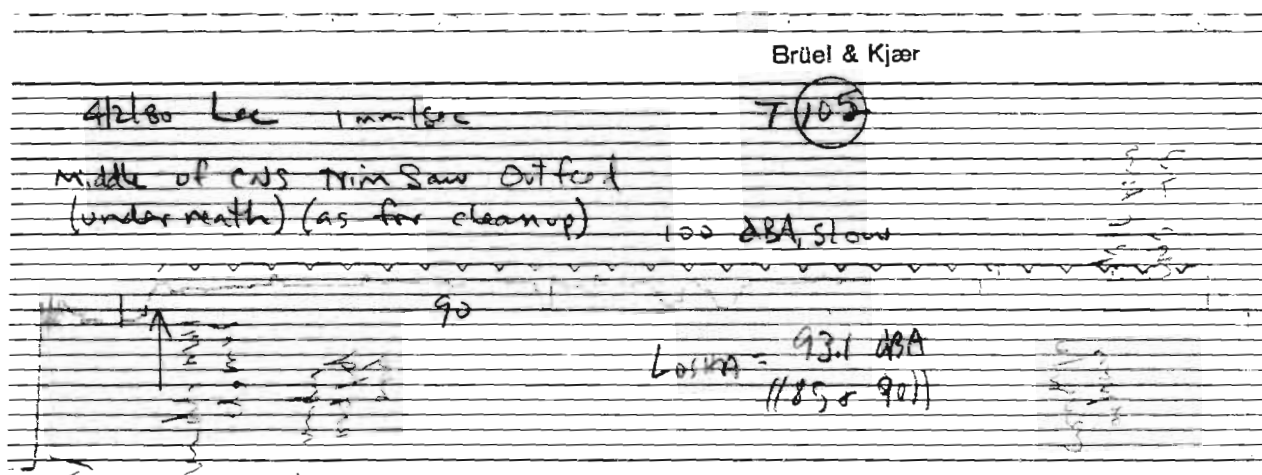 Brüel & Kjær
4/2/80 Lee 1 mm/sec T 105
Middle of CNS Trim Saw Outfeed
(underneath) (as for cleanup) 100 dBA, slow
90
LOSHA = 93.1 dBA
((85, 8 90))